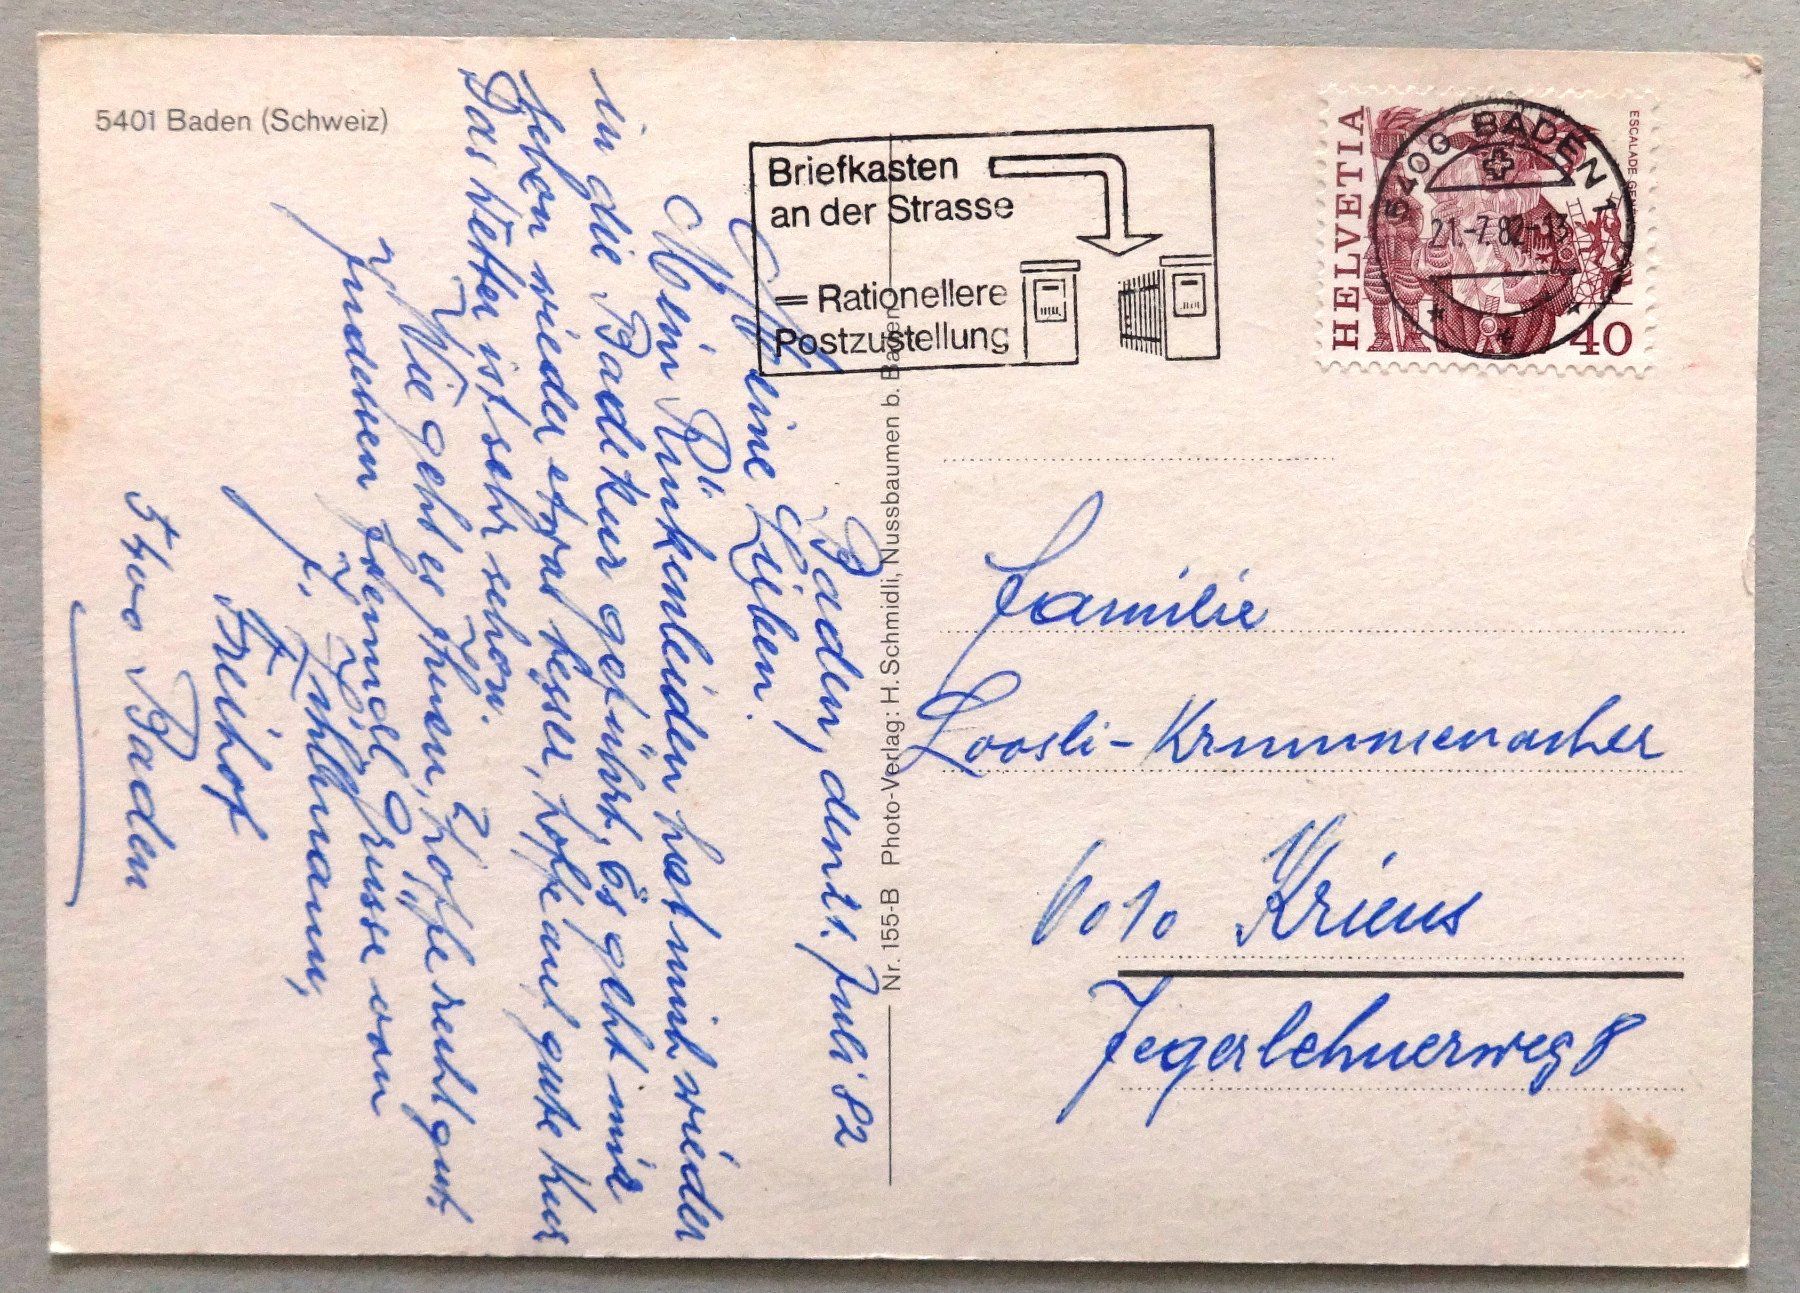 5401 Baden (Schweiz)
Briefkasten
an der Strasse
= Rationellere
Postzustellung
HELVETIA
ESCALADE
40
5400 BADEN 1
21.-7.82-13
Nr. 155-B Photo-Verlag: H. Schmidli, Nussbaumen b. Baden
Baden, den 21. Juli 82
Meine Lieben!
Mein Rückenleiden hat mich wieder
in die Badekur geführt, Es geht mir
schon wieder etwas besser, hoffe auf gute Kur
Das Wetter ist sehr schön.
Wie geht es Ihnen, hoffe recht gut
Indessen Grüsse von
Freihof
5400 Baden
Familie
Loosli-Krummenacher
6010 Kriens
Jegerlehnerweg 8